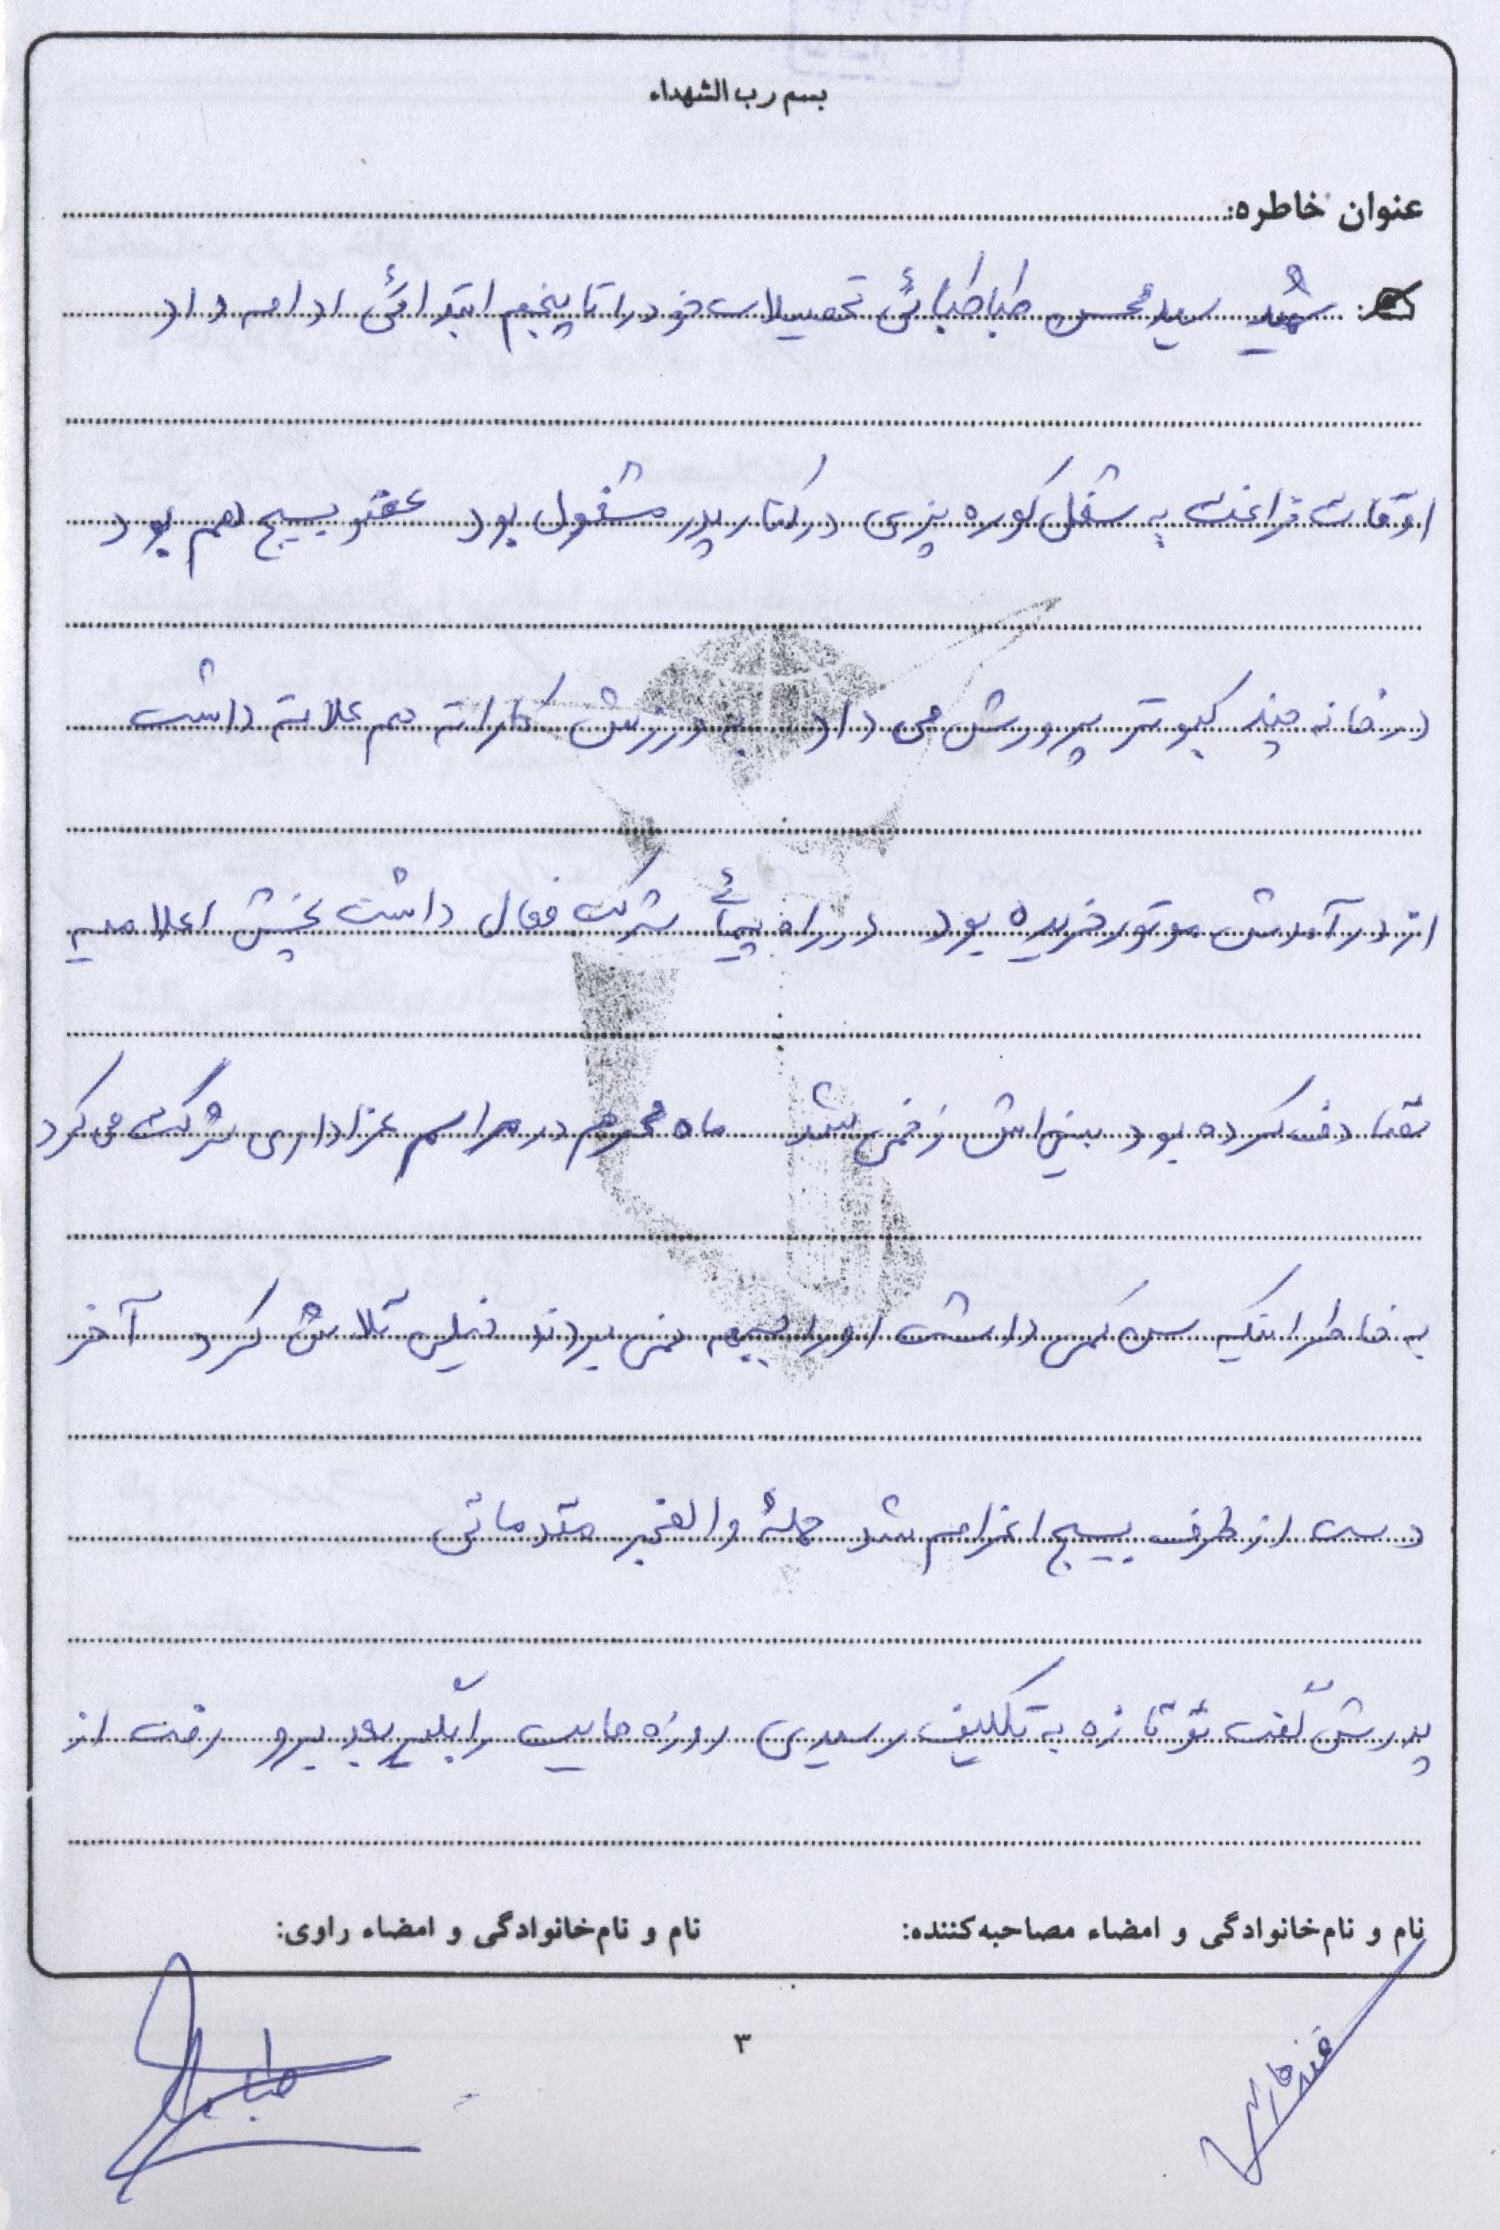 بسم رب الشهداء
عنوان خاطره:
شهید سید محسن طباطبائی تحصیلات خود را تا پنجم ابتدائی ادامه داد
اوقات فراغت به شغل کوره پزی در کنار پدر مشغول بود عضو بسیج هم بود
در خانه چند کبوتر پرورش می داد به ورزش کاراته هم علاقه داشت
از درآمدش موتور خریده بود در راه پیمائی شرکت فعال داشت پخش اعلامیه
تصادف کرده بود بینی‌اش زخمی شد ماه محرم در مراسم عزاداری شرکت می کرد
به خاطر اینکه سن کمی داشت او را جبهه نمی بردند خیلی تلاش کرد آخر
دست از طرف بسیج اعزام شد حملهٔ والفجر مقدماتی
پدرش گفت تو تازه به تکلیف رسیدی روزه هایت را بگیر بعد برو رفت از
نام و نام‌خانوادگی و امضاء مصاحبه‌کننده:
نام و نام‌خانوادگی و امضاء راوی:
۳